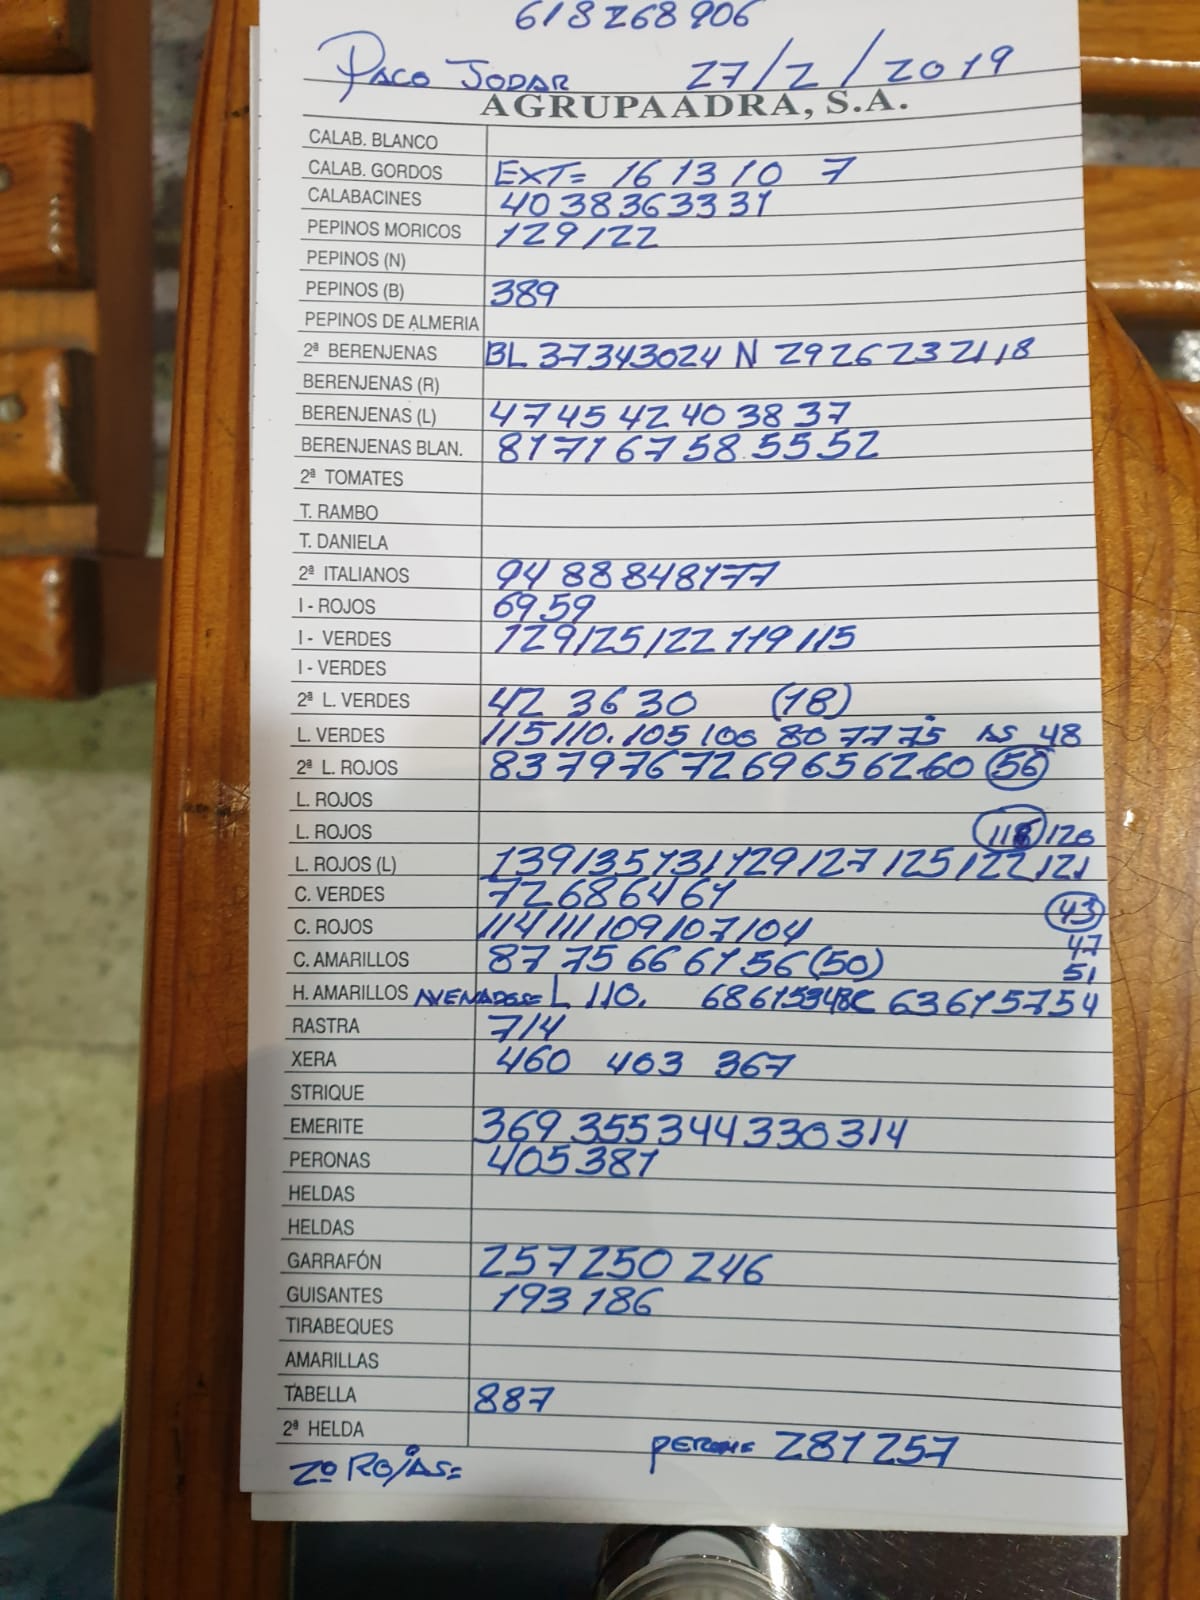 618268906
PACO JODAR 27/2/2019
AGRUPAADRA, S.A.
CALAB. BLANCO
CALAB. GORDOS EXT= 16 13 10 7
CALABACINES 40 38 36 33 31
PEPINOS MORICOS 129 122
PEPINOS (N)
PEPINOS (B) 389
PEPINOS DE ALMERIA
2ª BERENJENAS BL 37 34 30 24 N 29 26 23 21 18
BERENJENAS (R)
BERENJENAS (L) 47 45 42 40 38 37
BERENJENAS BLAN. 81 71 67 58 55 52
2ª TOMATES
T. RAMBO
T. DANIELA
2ª ITALIANOS 94 88 84 81 77
I - ROJOS 69 59
I - VERDES 129 125 122 119 115
I - VERDES
2ª L. VERDES 42 36 30 (18)
L. VERDES 115 110. 105 100 80 77 75 AS 48
2ª L. ROJOS 83 79 76 72 69 65 62 60 56
L. ROJOS
L. ROJOS 118 120
L. ROJOS (L) 139 135 131 129 127 125 122 121
C. VERDES 72 68 64 61 43
C. ROJOS 114 111 109 107 104 47
C. AMARILLOS 87 75 66 61 56 (50) 51
H. AMARILLOS L 110. 63 61 57 54
RASTRA 714
XERA 460 403 367
STRIQUE
EMERITE 369 355 344 330 314
PERONAS 405 381
HELDAS
HELDAS
GARRAFÓN 257 250 246
GUISANTES 193 186
TIRABEQUES
AMARILLAS
TABELLA 887
2ª HELDA 281 257
2º ROJAS=